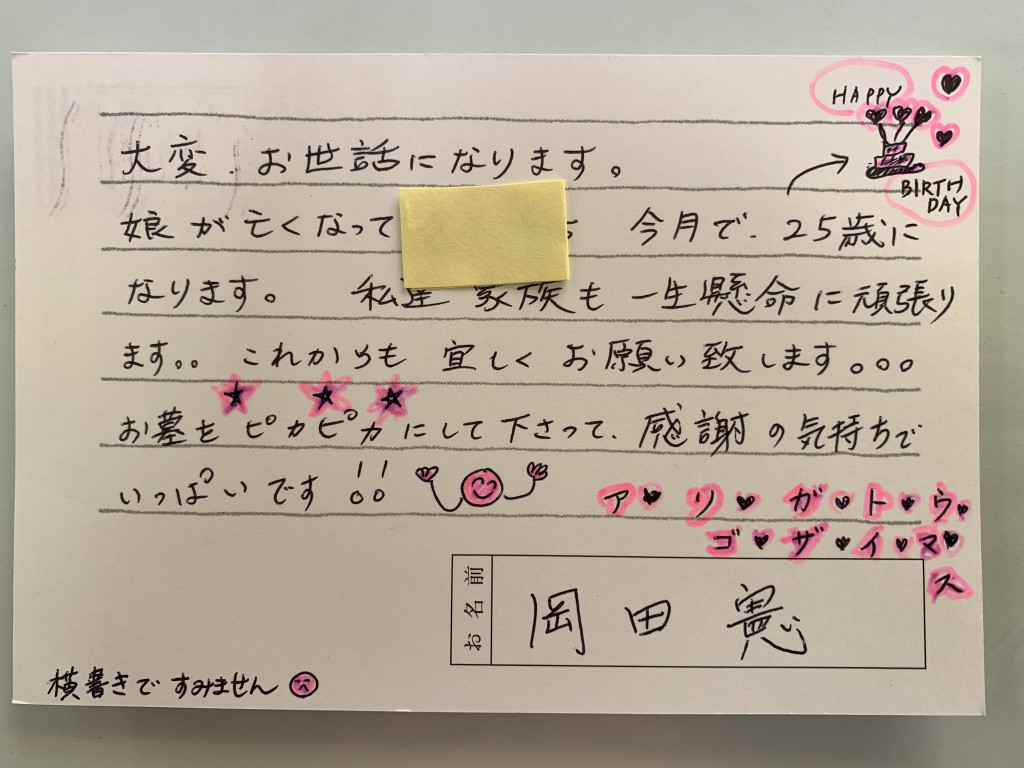 HAPPY
BIRTH
DAY
大変.お世話になります。
娘が亡くなって 今月で.25歳に
なります。 私達 家族も 一生懸命に頑張り
ます。。 これからも 宜しく お願い致します。。。
お墓を ピカピカにして下さって、感謝の気持ちで
いっぱいです!!
ア リ ガ ト ウ
ゴ ザ イ マ
ス
お名前
岡田 憲
横書きで すみません